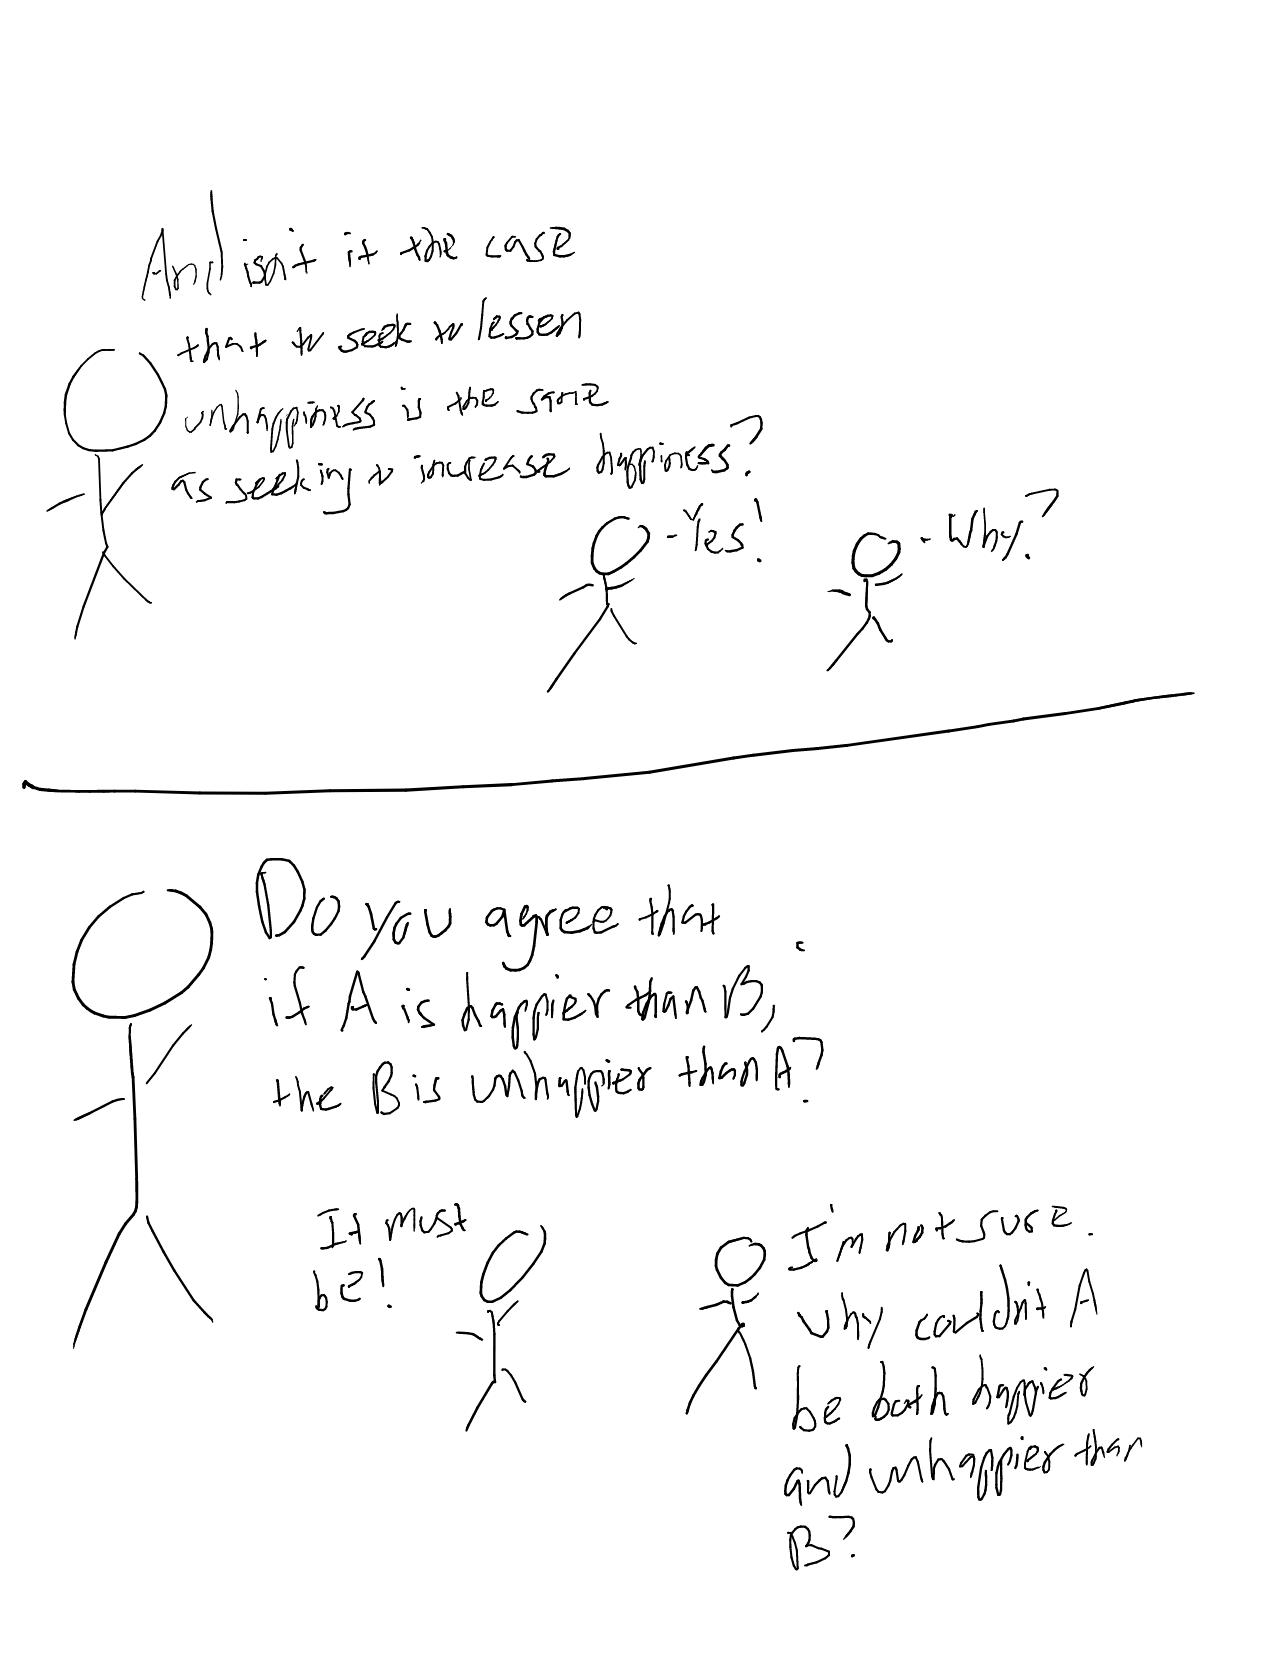 And isn't it the case
that to seek to lessen
unhappiness is the same
as seeking to increase happiness?
- Yes!
- Why?
Do you agree that
if A is happier than B,
the B is unhappier than A?
It must
be!
I'm not sure.
Why couldn't A
be both happier
and unhappier than
B?